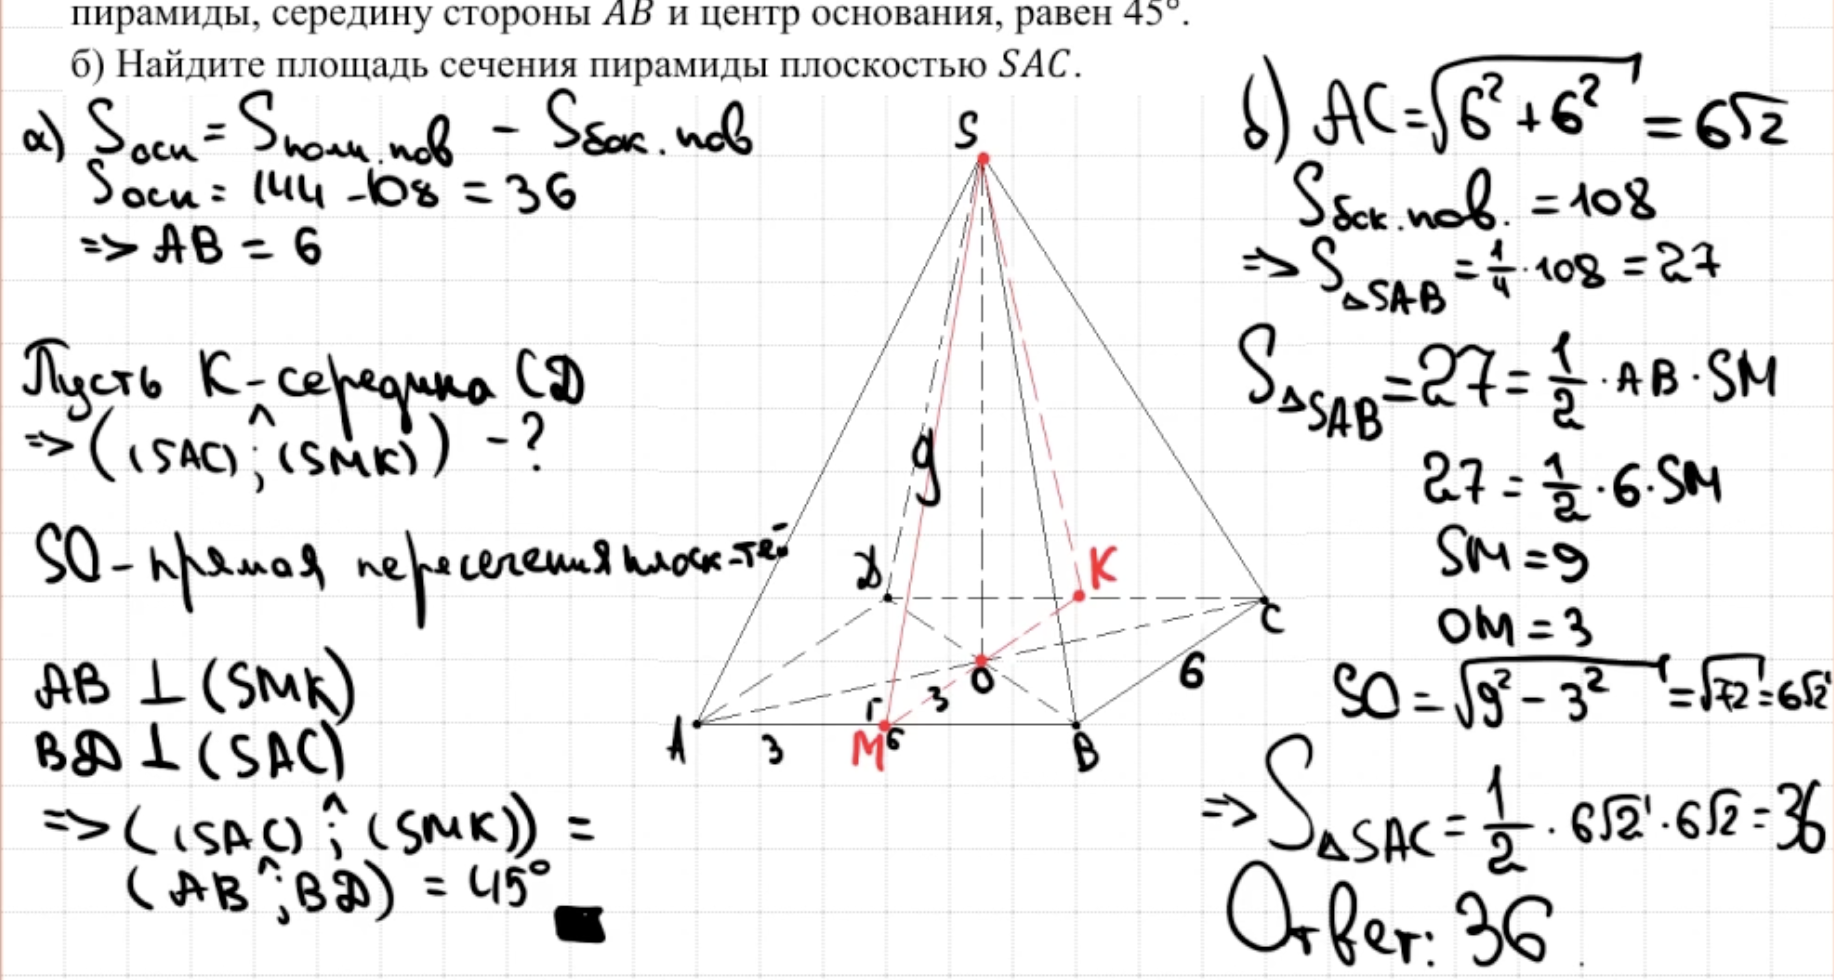 пирамиды, середину стороны AB и центр основания, равен 45°.
б) Найдите площадь сечения пирамиды плоскостью SAC.
а) Sосн = Sполн.пов - Sбок.пов
Sосн = 144 - 108 = 36
=> AB = 6
Пусть K - середина CD
=> ((SAC) ^; (SMK)) - ?
SO - прямая пересечения плоск-тей
AB ⊥ (SMK)
BD ⊥ (SAC)
=> ((SAC) ^; (SMK)) =
(AB ^; BD) = 45°
S
9
D
K
C
O
6
3
A
3
M
6
B
б) AC = √6² + 6² = 6√2
Sбок.пов. = 108
=> S△SAB = 1/4 · 108 = 27
S△SAB = 27 = 1/2 · AB · SM
27 = 1/2 · 6 · SM
SM = 9
OM = 3
SO = √9² - 3² = √72 = 6√2
=> S△SAC = 1/2 · 6√2 · 6√2 = 36
Ответ: 36.